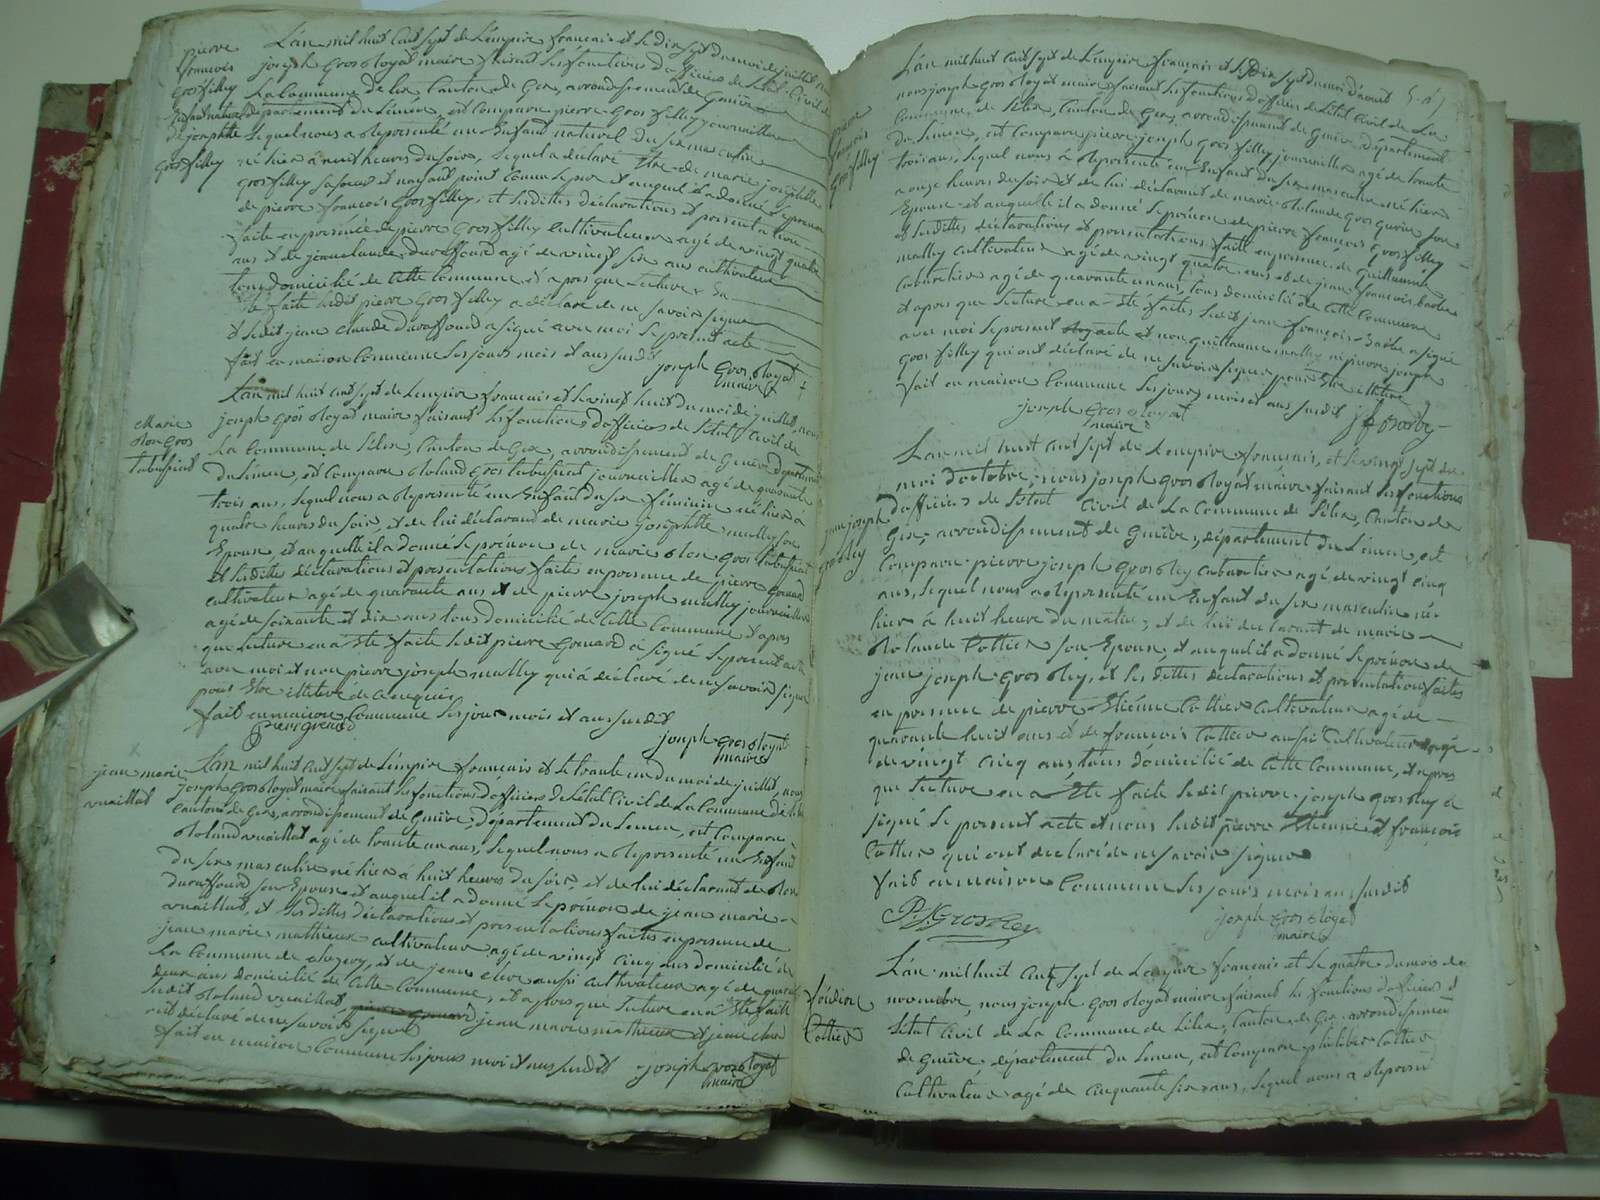 pierre
francois
Grosfilley
Enfant naturel
de josephte
Grosfilley
L'an mil huit cent sept de L'empire francais et le dix sept du moi de juillet
joseph Gros Royat maire faisant les fonctions d'officier de l'Etat Civil de
La Commune de Lelex Canton de Gex, arrondissement de Geneve
département du Léman, est Comparu pierre Grosfilley journaillier
Lequel nous a représenté un Enfant naturel du sexe masculin
né hier à huit heures du soir, Lequel a déclaré Etre de marie josephte
Grosfilley sa soeur et n'ayant point Connu le pere et auquel il a donné le prenom
de pierre francois Grosfilley, et Lesdittes déclarations et presentation
faite en présence de pierre Grosfilley Cultivateur agé de vingt quatre
ans et de jean claude Duraffourd agé de vingt six ans cultivateur
tous domicilié de Cette Commune, et apres que Lecture En
a Eté faite Ledit pierre Grosfilley a déclaré de ne savoir signer
et Ledit jean claude Duraffourd a signé avec moi Le présent acte
fait en maison Commune Les jours mois et ans susdit
joseph Gros Royat
maire
Marie
Rose Gros
tabussiat
L'an mil huit cent sept de L'empire francais et Le vingt huit du moi de juillet, nous
joseph Gros Royat maire faisant Les fonctions d'officier de L'etat Civil de
La Commune de Lélex, Canton de Gex, arrondissement de Geneve département
du Léman, est Comparu Roland Gros tabussiat journaillier agé de quarante
trois ans, Lequel nous a représenté un Enfant du sexe féminin né hier à
quatre heures du soir, et de lui déclarant de marie josephtte mulley son
Epouse, et auquelle il a donné Le prénon de marie Rose Gros tabussiat
et Lesdittes déclarations et presentations faite en presence de pierre Grenard
cultivateur agé de quarante ans et de pierre joseph mulley journaillier
agé de soixante et dix ans tous domicilié de Cette Commune et apres
que Lecture en a Eté faite Ledit pierre Grenard a signé Le présent acte
avec moi et non pierre joseph mulley qui a déclaré de ne savoir signer
pour Etre illétéré de ce enquis
fait en maison Commune Les jour mois et ans susdit
joseph Gros Royat
maire
jean marie
vuaillat
L'an mil huit cent sept de L'empire francais et Le trente un du moi de juillet, nous
joseph Gros Royat maire faisant Les fonctions d'officier de L'etat Civil de La Commune de Lelex
canton de Gex, arrondissement de Genève, département du Leman, est Comparu
Roland vuaillat agé de trente un ans, Lequel nous a représenté un Enfant
du sexe masculin né hier à huit heures du soir, et de lui déclarant de Rose
duraffourd son Epouse et auquel il a donné Le prénon de jean marie
vuaillat, et Lesdittes déclarations et presentations faites en presence de
jean marie mathieux cultivateur agé de vingt cinq ans domicilié de
La Commune de , et de jean aussi Cultivateur agé de
deux ans domicilié de Cette Commune, et apres que Lecture en a Eté faite
Ledit Roland vuaillat, jean marie mathieux et jean
ont déclaré de ne savoir signer
fait en maison Commune Les jours moi et ans susdit
joseph Gros Royat
maire
pierre
francois
Grosfilley
L'an mil huit cent sept de L'empire francais et Le dix sept du moi d'aout
nous joseph Gros Royat maire faisant Les fonctions d'officier de L'etat Civil de La
Commune, de Lélex, Canton de Gex, arrondissement de Genève, département
du Léman, est Comparu pierre joseph Gros filley journaillier agé de trente
trois ans, Lequel nous à représenté un Enfant du sexe masculin né hier
a onze heures du soir et de lui déclarant de marie Rolande Gros gurin son
Epouse et auquelle il a donné Le prénon de pierre francois Gros filley
et Lesdittes déclarations et présentations faite en presence de guillaume
mulley cultivateur agé de vingt quatre ans et de jean francois barbe
Cabaretier agé de quarante un ans, tous domicilié de Cette Commune
et apres que Lecture en a Eté faites Ledit jean francois Barbe a signé
avec moi Le present acte et non guillaume mulley ni pierre joseph
Gros filley qui ont déclaré de ne savoir signer pour Etre illétéré
fait en maison Commune Les jours mois et ans susdit
joseph Gros Royat
maire
jean joseph
Grosley
L'an mil huit cent sept de L'empire francais, et Le vingt sept du
moi d'octobre, nous joseph Gros Royat maire faisant Les fonctions
d'officier de L'etat Civil de La Commune de Lélex, Canton de
Gex, arrondissement de Genève, département du Léman, est
Comparu pierre joseph Grosley Cabaretier agé de vingt cinq
ans, Lequel nous a représenté un Enfant du sexe masculin né
hier à huit heure du matin, et de lui déclarant de marie
Rolande Cottier son Epouse, et auquel il a donné Le prénon de
jean joseph Grosley, et Les dittes déclarations et presentation faites
en presence de pierre Etienne Cottier Cultivateur agé de
quarante huit ans et de francois Cottier aussi Cultivateur agé
de vingt cinq ans, tous domicilié de Cette Commune, et apres
que Lecture en a Eté faite Ledit pierre joseph Grosley a
signé Le present acte et nous Ledit pierre Etienne et francois
Cottier qui ont declaré de ne savoir signer
fait en maison Commune Les jours mois ans susdit
PJ Grosley
joseph Gros Royat
maire
Cottier
L'an mil huit cent sept de L'empire francais et Le quatre du mois de
novembre, nous joseph Gros Royat maire faisant les fonctions d'officier de
L'etat Civil de La Commune de Lélex, Canton de Gex arrondissement
de Genève, département du Leman, est Comparu philibert Cottier
Cultivateur agé de cinquante six ans, Lequel nous a représenté